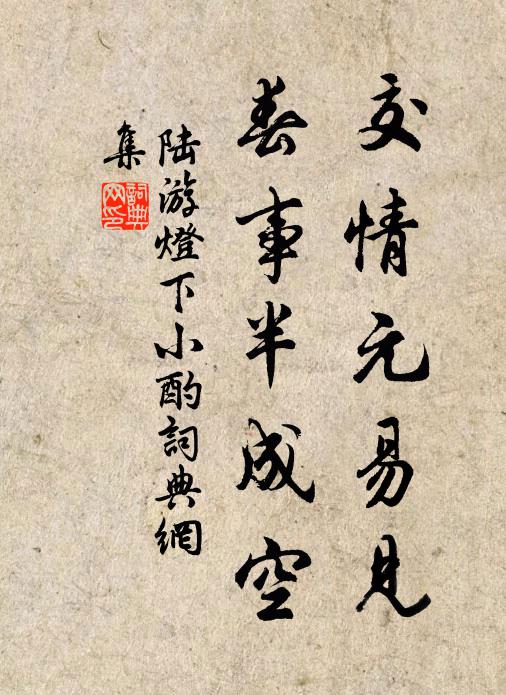 交情元易見
春事半成空
陸游燈下小酌詞典網
集
詞典網印